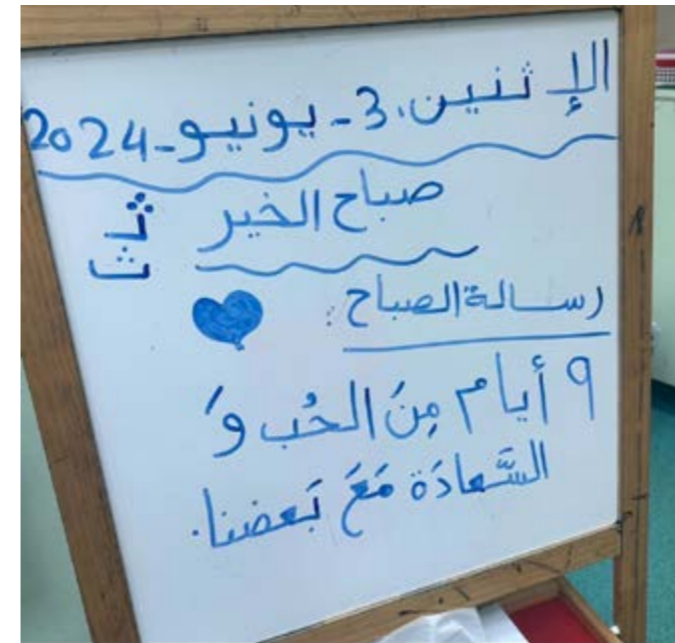 الإثنين، 3 - يونيو - 2024
صباح الخير
ثـ
ث
رسالة الصباح:
٩ أيام مِنَ الحُب وَ
السَّعادَة مَعَ بَعضنا.